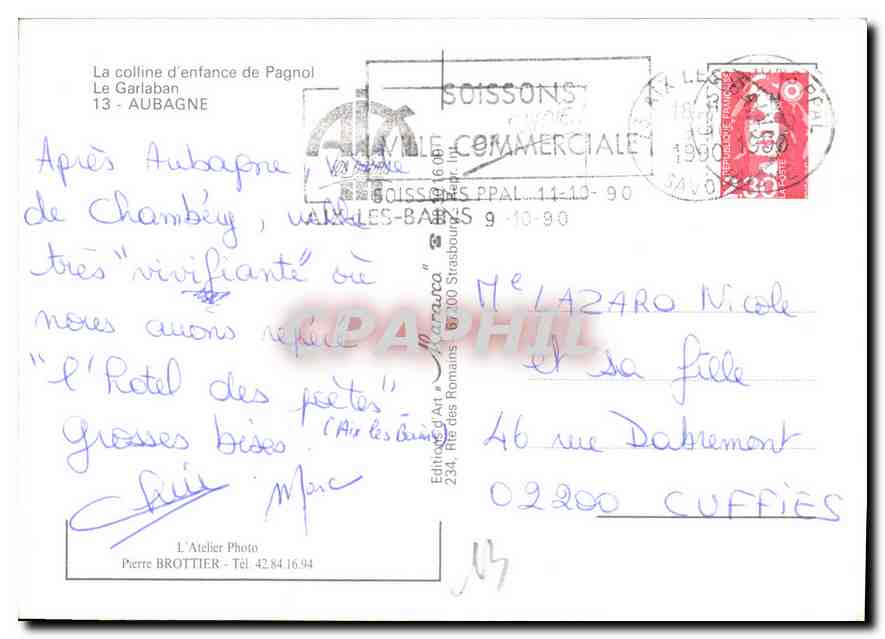 La colline d'enfance de Pagnol
Le Garlaban
13 - AUBAGNE
SOISSONS
VILLE COMMERCIALE
SOISSONS PPAL 11-10-90
AIX-LES-BAINS 9-10-90
73 AIX LES
1990 1990
SAVOIE
REPUBLIQUE FRANÇAISE
LA POSTE
Après Aubagne,
de Chambéry, ville
très "vivifiante" où
nous avons repéré
"l'hotel des poètes"
(Aix les Bains)
Grosses bises.
Marc
L'Atelier Photo
Pierre BROTTIER - Tél. 42.84.16.94
Editions d'Art "Marasca" ☎
234, Rte des Romains 67200 Strasbourg Repr. Int.
CPAPHIL
Me LAZARO Nicole
et sa fille
46 rue Dabremont
02200 CUFFIES
13